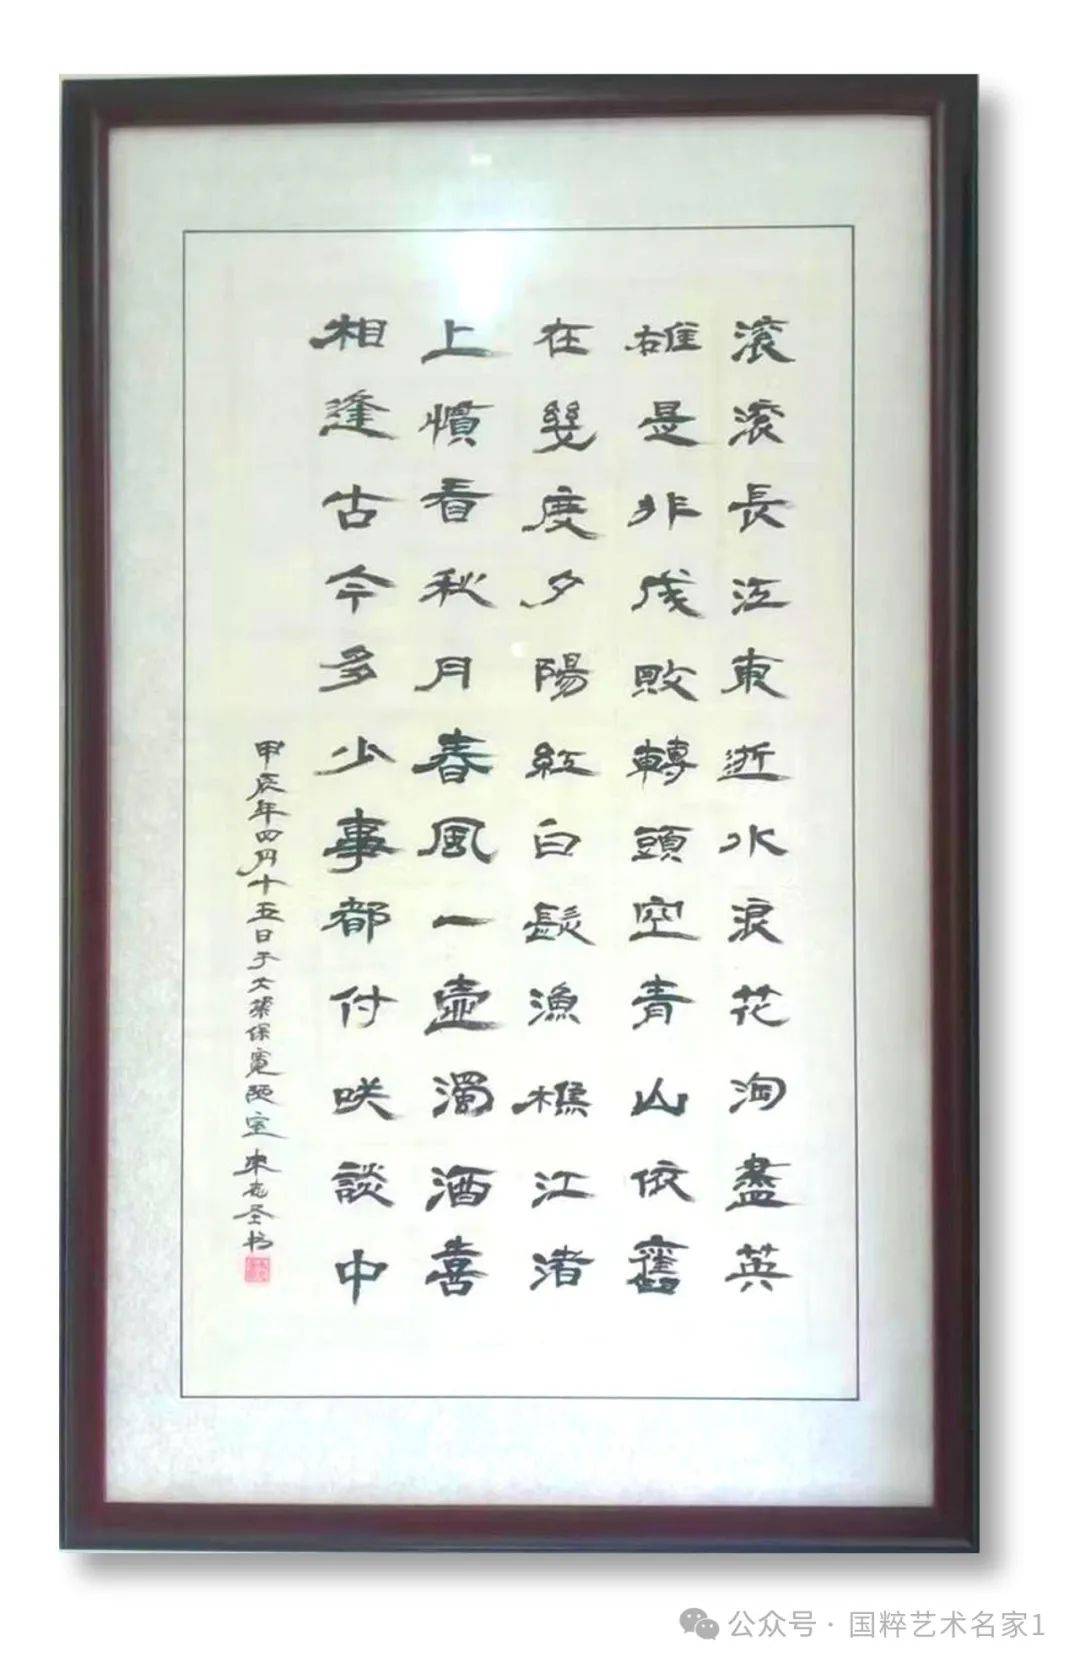 滚滚長江東逝水浪花淘盡英
雄是非成敗轉頭空青山依舊
在幾度夕陽紅白髮漁樵江渚
上慣看秋月春風一壺濁酒喜
相逢古今多少事都付咲談中
甲辰年四月十五日于大葉保寓陋室
公众号·国粹艺术名家1